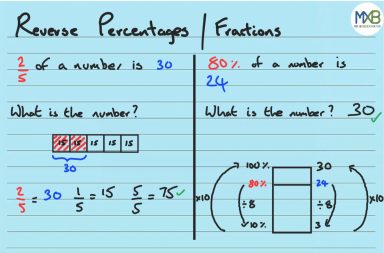 Reverse Percentages / Fractions
MXB
2/5 of a number is 30
What is the number?
15 15 15 15 15
30
2/5 = 30 1/5 = 15 5/5 = 75 ✓
80% of a number is
24
What is the number? 30 ✓
100% 30
80% 24
×10 ÷8 ÷8 ×10
10% 3